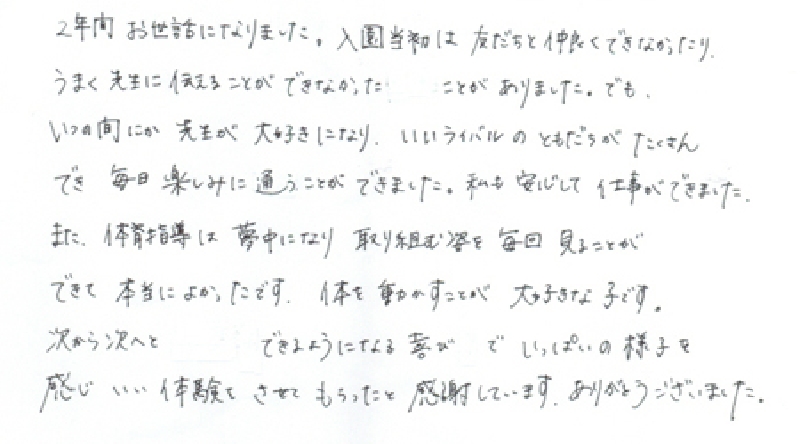 2年間 お世話になりました。入園当初は 友だちと仲良くできなかったり、
うまく 先生に 伝えることが できなかった ことが ありました。でも、
いつの間にか 先生が 大好きになり、いいライバルの ともだちが たくさん
でき 毎日 楽しみに 通うことが できました。私も 安心して 仕事ができました。
また、体育指導は 夢中になり 取り組む姿を 毎回 見ることが
できて 本当によかったです。体を 動かすことが 大好きな 子です。
次から次へと できるようになる 喜び で いっぱいの 様子を
感じ いい 体験を させて もらったと 感謝しています。ありがとうございました。